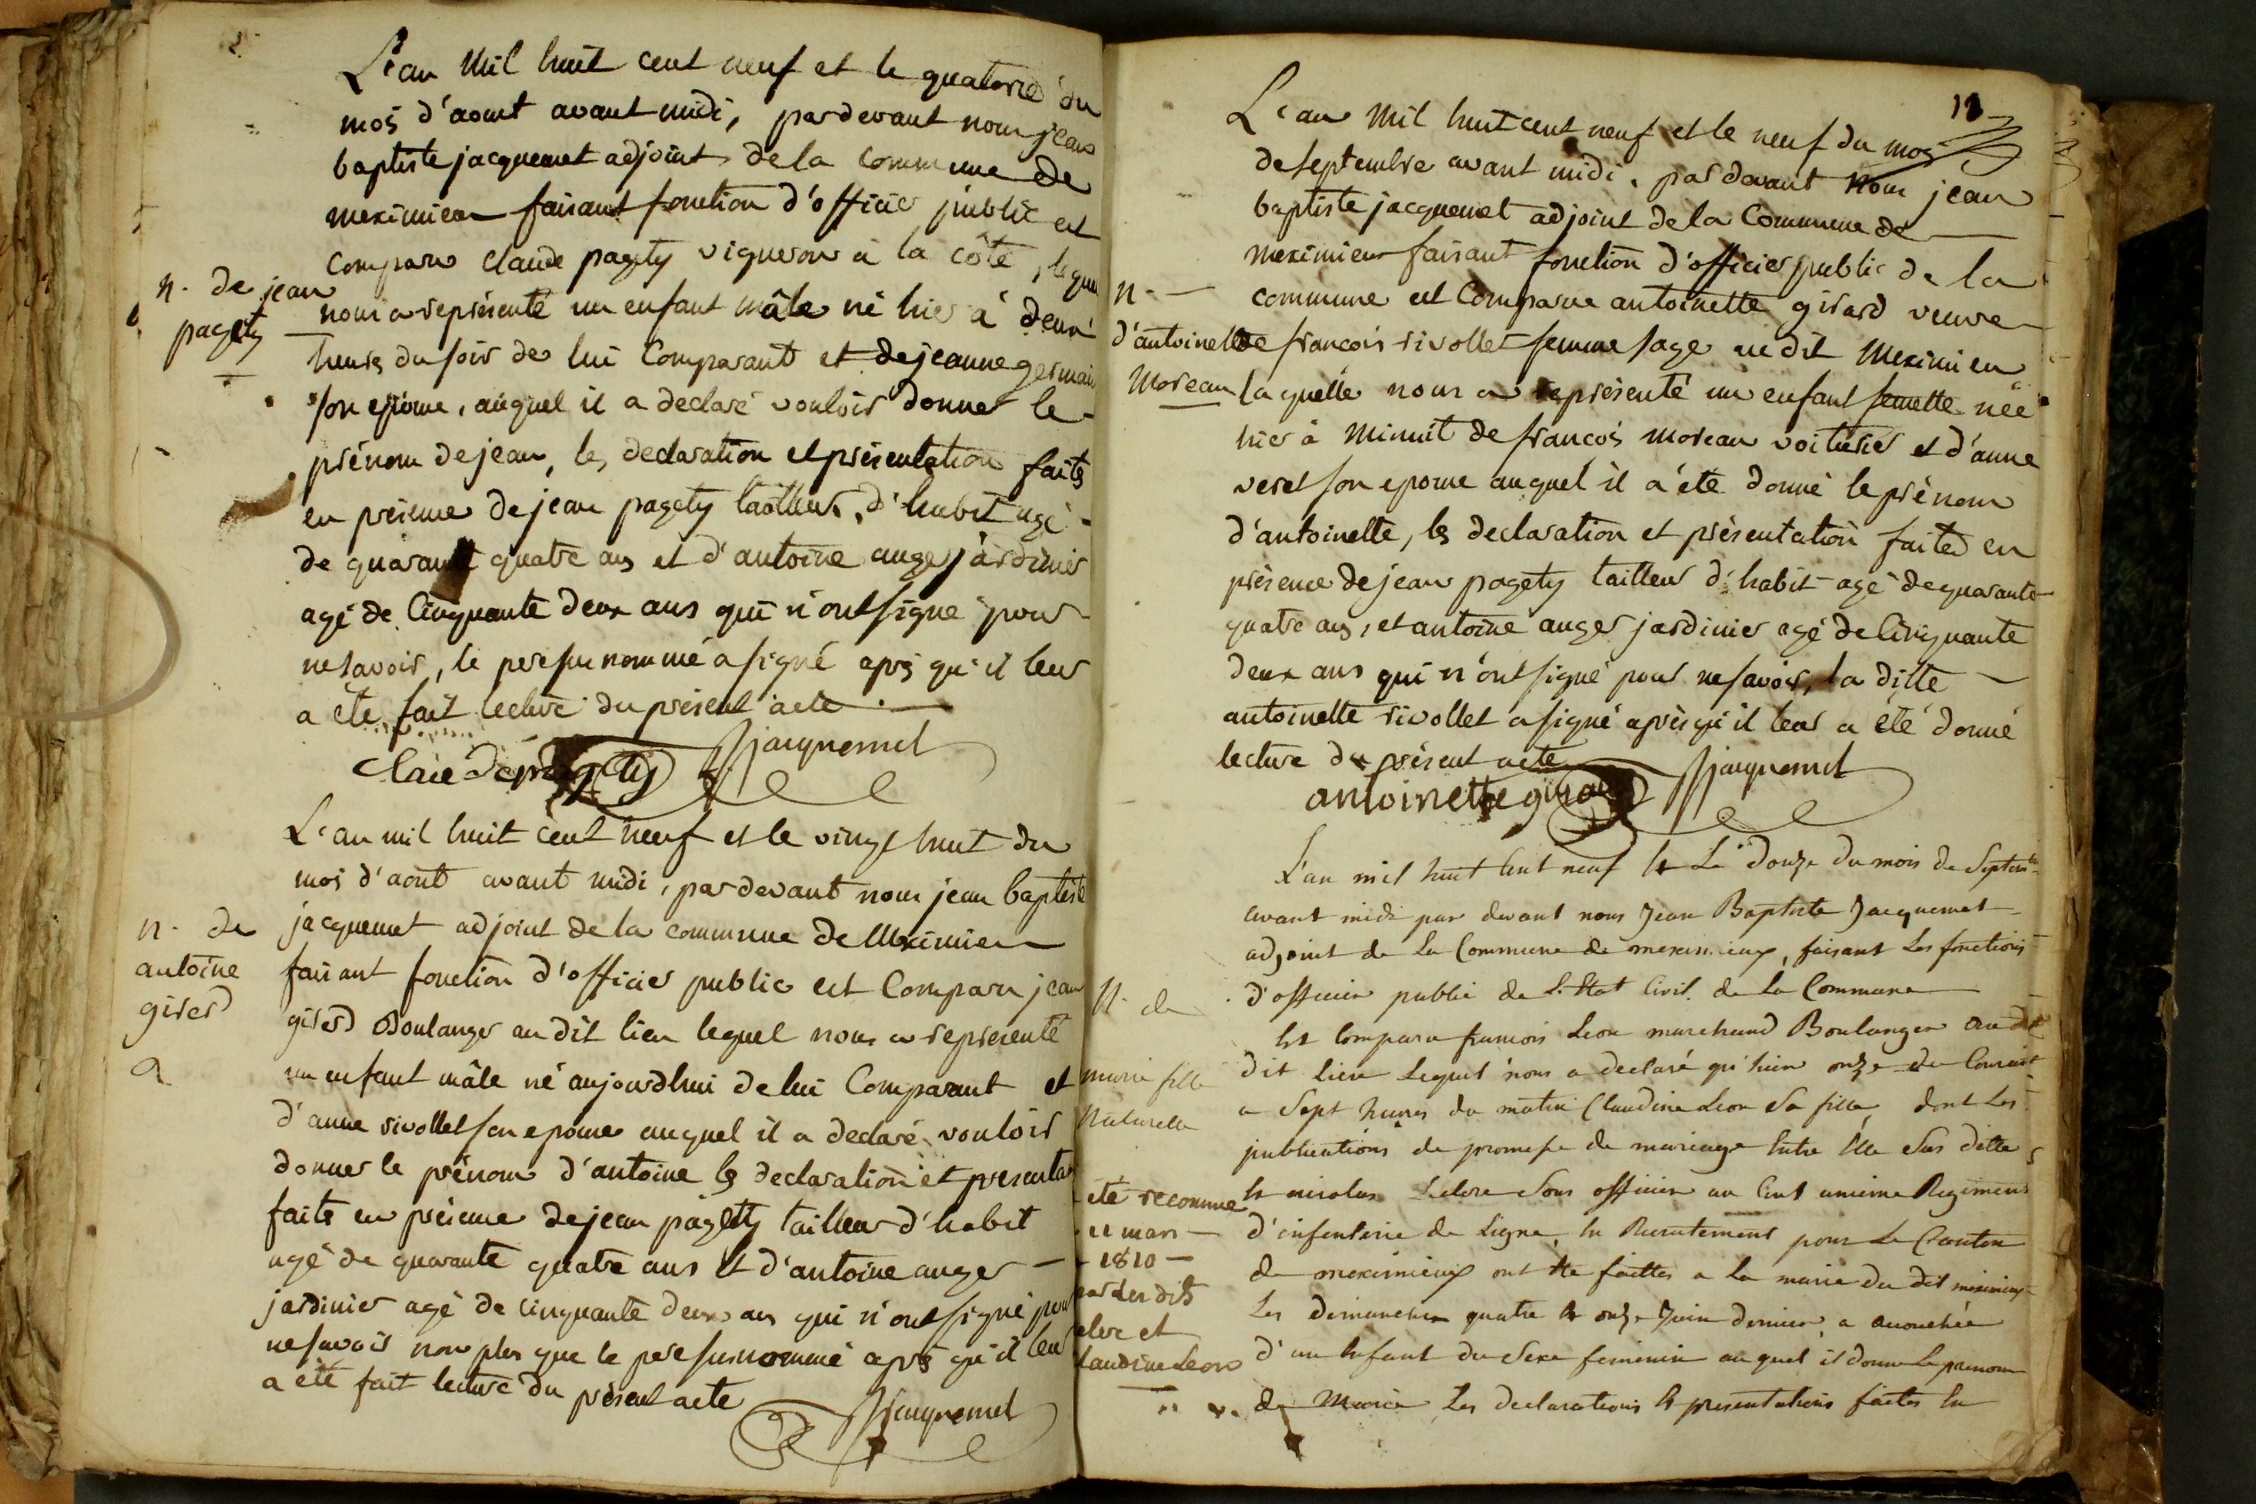 L'an mil huit cent neuf et le quatorze du
mois d'aout avant midi, pardevant nous jean
baptiste jacquemet adjoint de la commune de
meximieux faisant fonction d'officier public est
comparu claude pagety vigneron à la côte, lequel
n. de jean
pagety
nous a représenté un enfant mâle né hier à deux
heures du soir de lui Comparant et de jeanne germain
son épouse, auquel il a déclaré vouloir donner le
prénom de jean, les declaration et présentation faites
en présence de jean pagety tailleur d'habit agé
de quarante quatre ans et d'antoine auger jardinier
agé de Cinquante deux ans qui n'ont signé pour
ne savoir, le pere surnommé a signé après qu'il leur
a été fait lecture du présent acte.
claude pagety jjacquemet
L'an mil huit cent neuf et le vingt huit du
mois d'août avant midi, pardevant nous jean baptiste
n. de
antoine
girerd
jacquemet adjoint de la commune de Meximieux
faisant fonction d'officier public est Comparu jean
girerd Boulanger au dit lieu lequel nous a représenté
un enfant mâle né aujourdhui de lui Comparant et
d'anne rivollet son epouse auquel il a declaré vouloir
donner le prénom d'antoine les declaration et presentation
faite en présence de jean pagety tailleur d'habit
agé de quarante quatre ans et d'antoine auger
jardinier agé de cinquante deux ans qui n'ont signé pour
ne savoir non plus que le pere surnommé après qu'il leur
a été fait lecture du présent acte
jjacquemet
12
L'an mil huit cent neuf et le neuf du mois
de septembre avant midi, pardevant nous jean
baptiste jacquemet adjoint de la Commune de
meximieux faisant fonction d'officier public de la
n.
d'antoinette
Moreau
commune est Comparue antoinette girard veuve
de francois rivollet femme sage au dit Meximieux
laquelle nous a représenté un enfant femelle née
hier à minuit de francois moreau voiturier et d'anne
veret son epouse auquel il a été donné le prénom
d'antoinette, les declaration et présentation faites en
présence de jean pagety tailleur d'habit agé de quarante
quatre ans, et antoine auger jardinier agé de Cinquante
deux ans qui n'ont signé pour ne savoir, la ditte
antoinette rivollet a signé après qu'il leur a été donné
lecture du présent acte
antoinette girard jjacquemet
L'an mil huit Cent neuf et Le douze du mois de Septembre
avant midi par devant nous Jean Baptiste Jacquemet
adjoint de La Commune de meximieux, faisant Les fonctions
N. de
marie fille
naturelle
d'officier public de L'Etat Civil de La Commune
Est Comparu francois Leon marchand Boulanger au dit
dit Lieu Lequel nous a declaré qu'hier onze du Courant
a Sept heures du matin Claudine Leon Sa fille, dont Les
publications de promesse de mariage Entre Elle Sus ditte
été reconnue
11 mars
1810
par les dits
elere et
laudine Leon
Et nicolas Sous officier au Cent unieme Regiment
d'infanterie de Ligne, En Recrutement pour Le Canton
de meximieux ont Ete faittes a La mairie du dit meximieux
Les dimanches quatre et onze Juin dernier, a accouchée
d'un Enfant du Sexe feminin auquel il donne Le prenom
de Marie Les declarations et presentations faites En